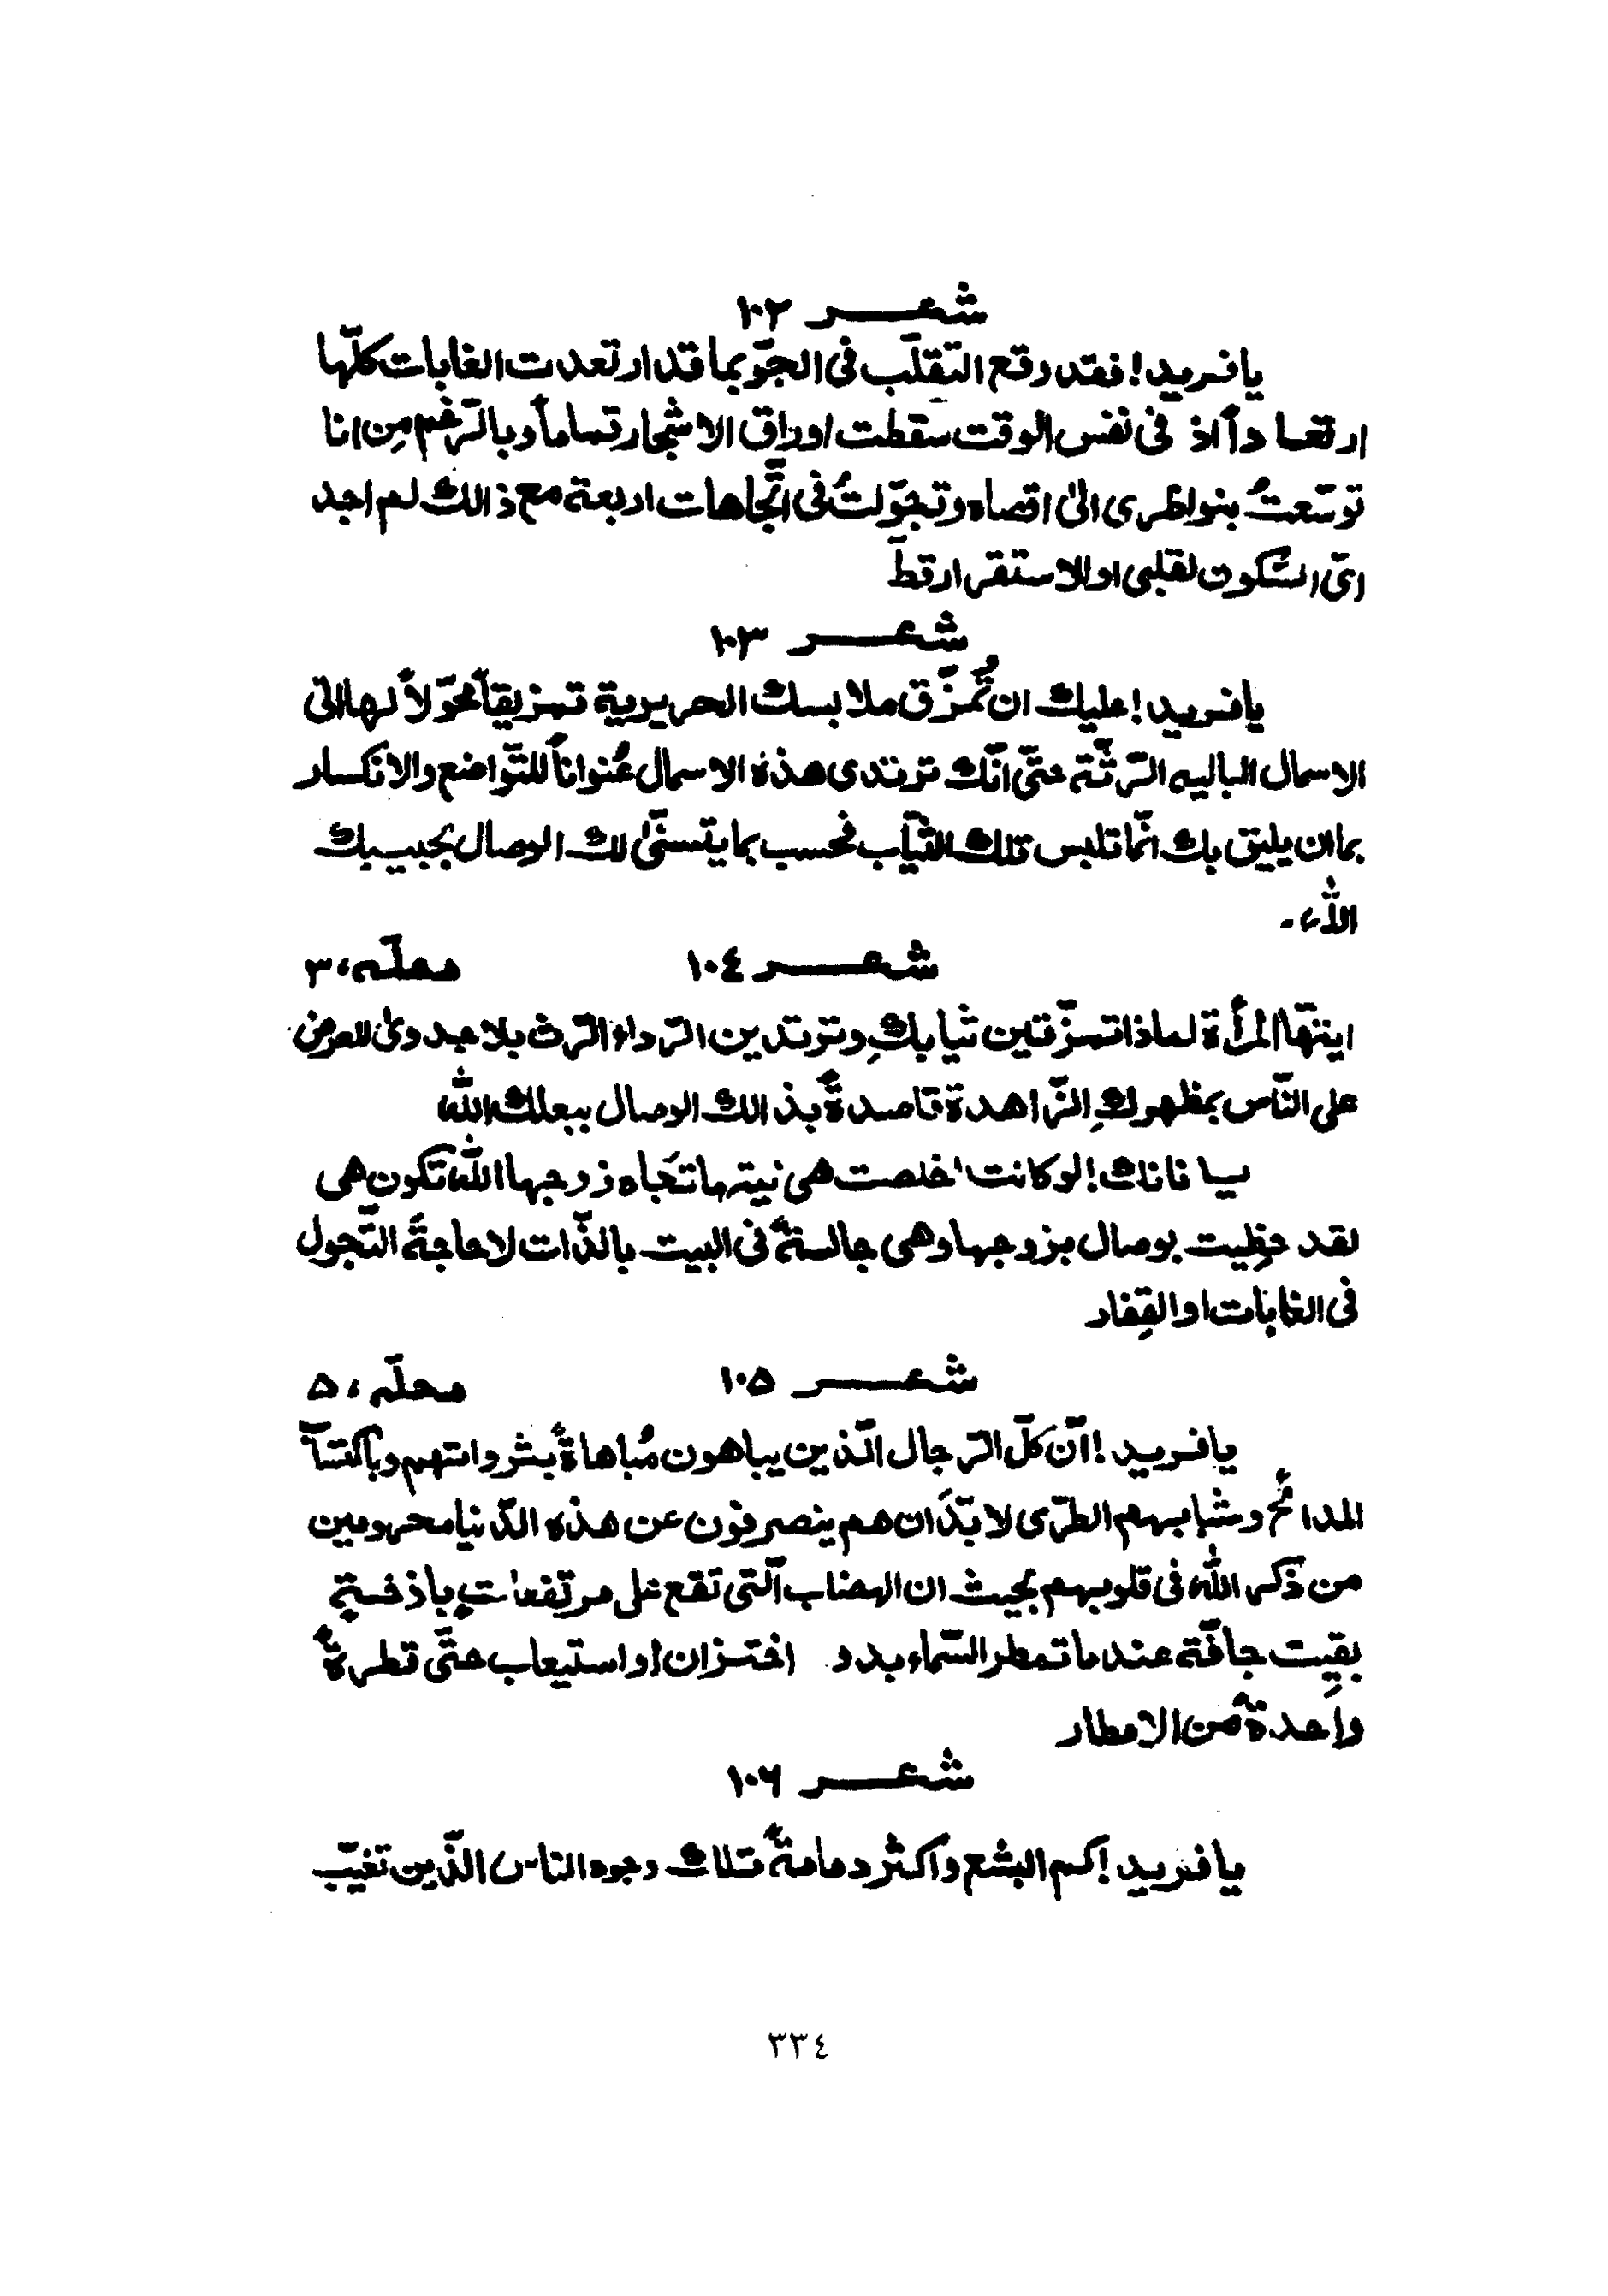 شعر ١٠٢
يا فريد! فقد وقع التقلّب فى الجوّ بما قد ارتعدت الغابات كلّها
ارتعاداً اذ فى نفس الوقت سقطت اوراق الاشجار تماماً وبالرّغم مِن انا
توسّعتُ بنواظرى الىٰ اقصاه وتجوّلتُ فى اتّجاهات اربعة مع ذالك لم اجد
اىّ السّكون لقلبى او الاستقرار قطّ
شعر ١٠٣
يا فريد! عليك ان تُمزّق ملابسك الحريرية تمزيقاً محوّلاً لها الى
الاسمال الباليه الرّثّة حتّى انّك ترتدى هذه الاسمال عُنواناً للتّواضع والانكسار
بما ان يليق بك انّما تلبس تلك الثّياب فحسب بما يتسنّىٰ لك الوصال بحبيبك
اللّٰه ۔
شعر ١٠٤ محلّه، ٣
ايتهّا المرأة لماذا تمزّقين ثيابكِ وترتدين الرّداء الرّث بلا جدوىٰ للعرض
على النّاس بمظهركِ الزّاهدة قاصدةً بذالك الوصال ببعلك اللّٰه
يا ناناك! لو كانت اخلصت هى نيتها تجاه زوجها اللّٰه تكون هى
لقد حظِيت بوصال بزوجها وهى جالسةً فى البيت بالذّات لا حاجةَ التّجول
فى الغابات او القِفار
شعر ١٠٥ محلّه، ٥
يا فريد! انّ كلّ الرّجال الّذين يباهون مُباهاةً بثرواتهم وباكتسآ
المدائح وشبابهم الطرّى لا بدّ ان هم ينصرفون عن هذه الدّنيا محرومين
من ذكر اللّٰه فى قلوبهم بحيث ان الهضاب الّتى تقع على مرتفعاتٍ باذخةٍ
بقِيت جافّة عندما تمطر السّماء بدو اختزان او استيعاب حتّى قطرةً
واحدةً من الامطار
شعر ١٠٦
يا فريد! كم البشع واكثر دمامةً تلاك وجوه الناس الذّين تغيّب
٣٣٤